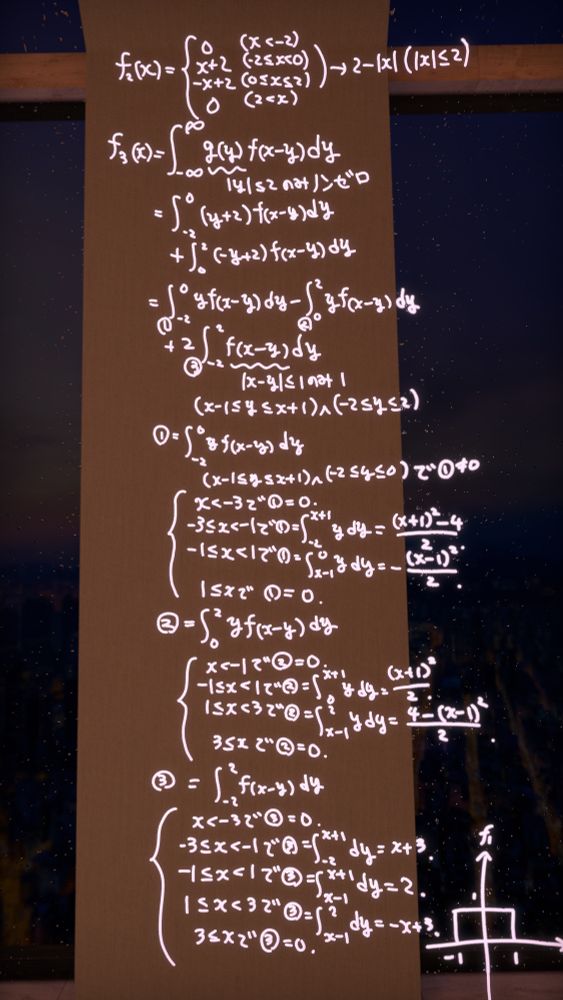 f₂(x) = { 0 (x < -2)
x+2 (-2 ≤ x < 0)
-x+2 (0 ≤ x ≤ 2)
0 (2 < x) } → 2-|x| (|x| ≤ 2)
f₃(x) = ∫_{-∞}^{∞} g(y) f(x-y) dy
|y| ≤ 2 のみノンゼロ
= ∫_{-2}^{0} (y+2) f(x-y) dy
+ ∫_{0}^{2} (-y+2) f(x-y) dy
= ∫_{-2}^{0} y f(x-y) dy - ∫_{0}^{2} y f(x-y) dy
① ②
+ 2 ∫_{-2}^{2} f(x-y) dy
③
|x-y| ≤ 1 のみ 1
(x-1 ≤ y ≤ x+1) ∧ (-2 ≤ y ≤ 2)
① = ∫_{-2}^{0} y f(x-y) dy
(x-1 ≤ y ≤ x+1) ∧ (-2 ≤ y ≤ 0) で ① ≠ 0
{ x < -3 で ① = 0.
-3 ≤ x < -1 で ① = ∫_{-2}^{x+1} y dy = ((x+1)² - 4)/2
-1 ≤ x < 1 で ① = ∫_{x-1}^{0} y dy = -(x-1)²/2.
1 ≤ x で ① = 0.
② = ∫_{0}^{2} y f(x-y) dy
{ x < -1 で ② = 0.
-1 ≤ x < 1 で ② = ∫_{0}^{x+1} y dy = (x+1)²/2.
1 ≤ x < 3 で ② = ∫_{x-1}^{2} y dy = (4-(x-1)²)/2.
3 ≤ x で ② = 0.
③ = ∫_{-2}^{2} f(x-y) dy
{ x < -3 で ③ = 0.
-3 ≤ x < -1 で ③ = ∫_{-2}^{x+1} dy = x+3.
-1 ≤ x < 1 で ③ = ∫_{x-1}^{x+1} dy = 2.
1 ≤ x < 3 で ③ = ∫_{x-1}^{2} dy = -x+3.
3 ≤ x で ③ = 0.
f₁
1
-1 1